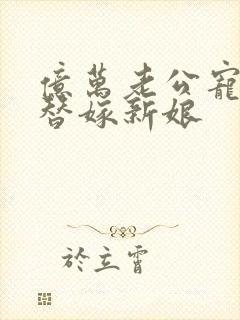 億萬老公寵
替嫁新娘
於立霄